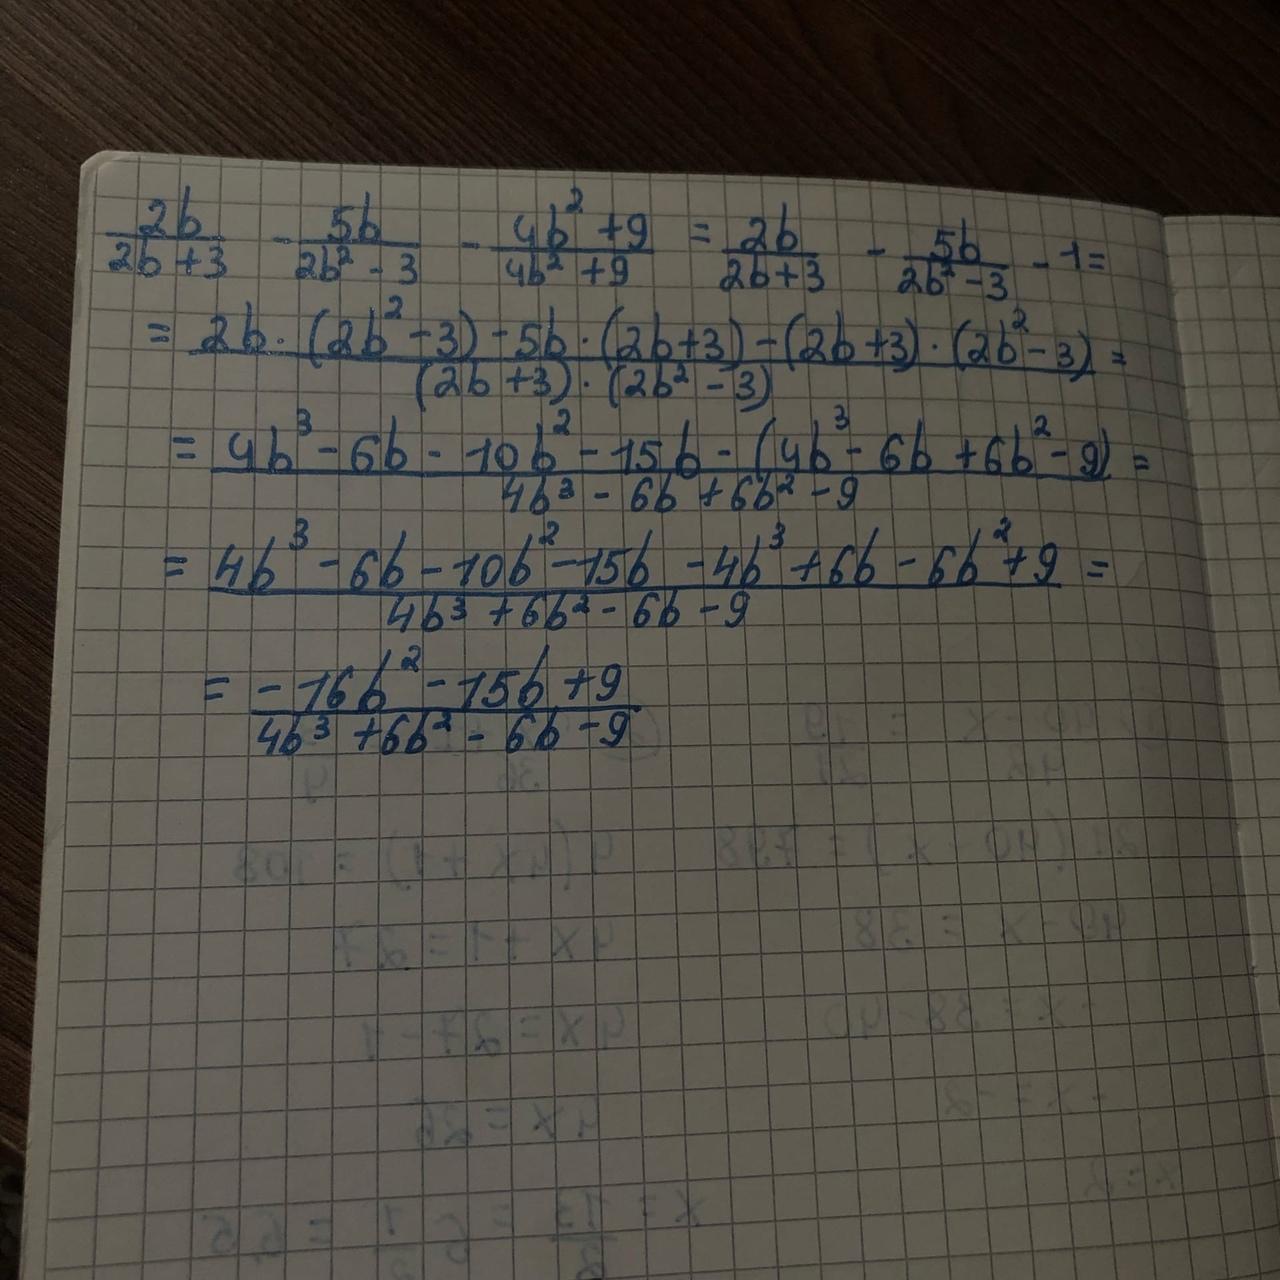 2b/(2b+3) - 5b/(2b² - 3) - (4b² + 9)/(4b² + 9) = 2b/(2b+3) - 5b/(2b² - 3) - 1 =
= (2b · (2b² - 3) - 5b · (2b+3) - (2b+3) · (2b² - 3))/((2b+3) · (2b² - 3)) =
= (4b³ - 6b - 10b² - 15b - (4b³ - 6b + 6b² - 9))/(4b³ - 6b + 6b² - 9) =
= (4b³ - 6b - 10b² - 15b - 4b³ + 6b - 6b² + 9)/(4b³ + 6b² - 6b - 9) =
= (-16b² - 15b + 9)/(4b³ + 6b² - 6b - 9)